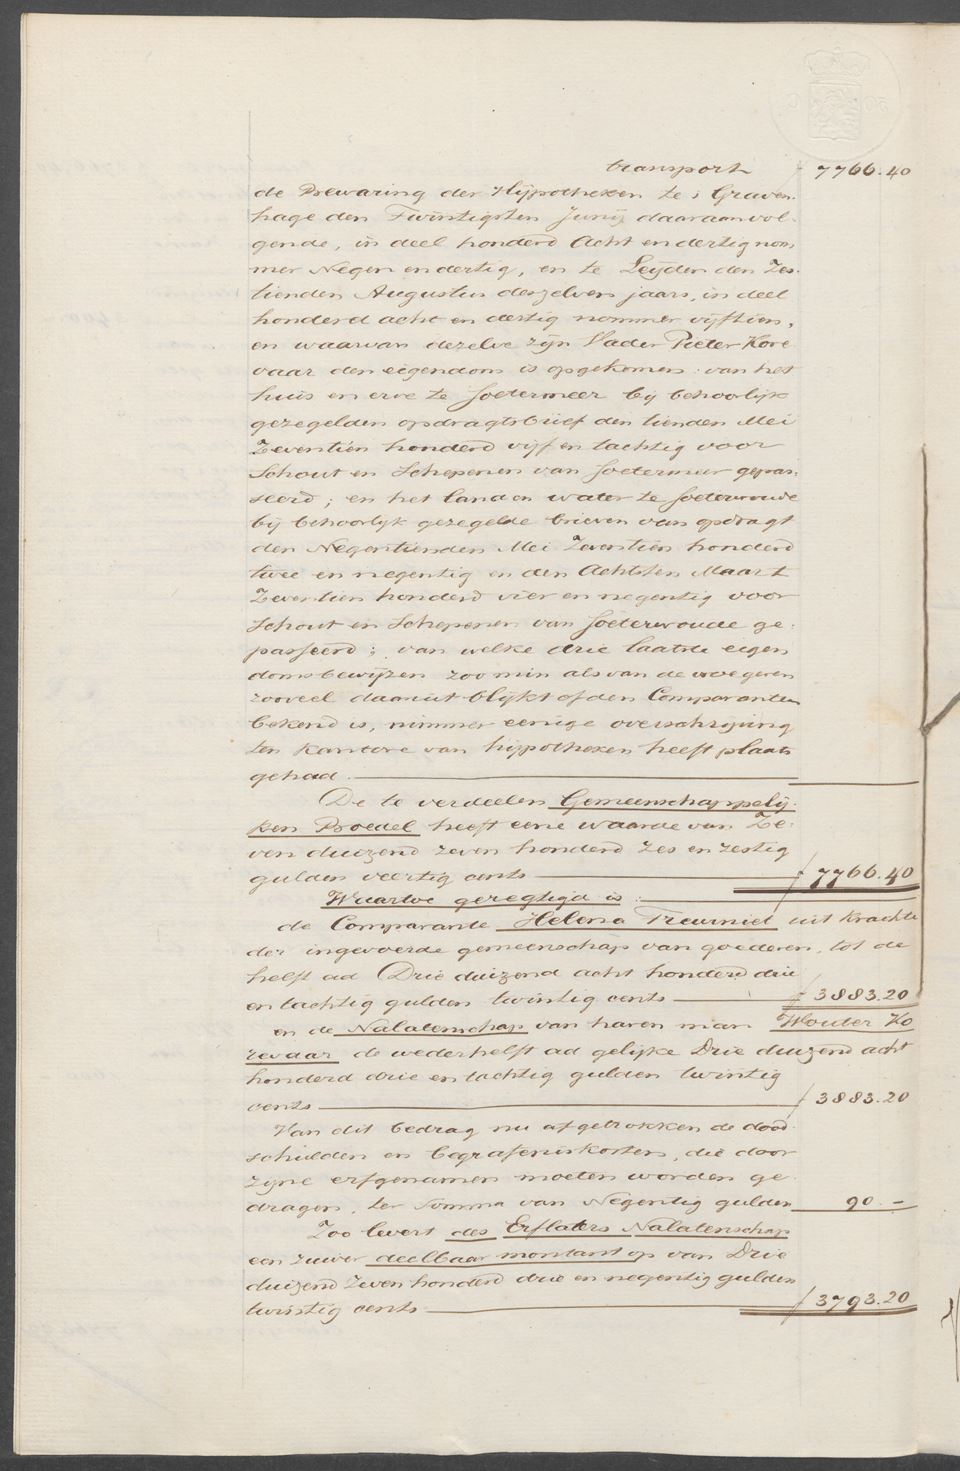 transport f 7766.40
de Bewaring der Hijpotheken te s Graven
hage den Twintigsten Junij daaraanvol-
gende, in deel honderd Acht en dertig nom
mer Negen en dertig, en te Leijden den Zes-
tienden Augustus deszelven jaars, in deel
honderd acht en dertig nommer vijftien,
en waarvan dezelve zijn Vader Pieter Kore
vaar den eigendom is opgekomen: van het
huis en erve te Soetermeer bij behoorlijk
gezegelden opdragtsbrief den tienden Mei
Zeventien honderd vijf en tachtig voor
Schout en Schepenen van Soetermeer gepas-
seerd; en het land en water te Soeterwoude
bij behoorlijk gezegelde brieven van opdragt
den Negentienden Mei Zeventien honderd
twee en negentig en den Achtsten Maart
Zeventien honderd vier en negentig voor
Schout en Schepenen van Soeterwoude ge-
passeerd; van welke drie laatste eigen
doms bewijzen zoo min als van de vroegeren
zooveel daaruit blijkt of den Comparanten
bekend is, nimmer eenige overschrijving
ten kantore van hijpotheken heeft plaats
gehad.
De te verdeelen Gemeenschappelij-
ken Boedel heeft eene waarde van Ze-
ven duizend zeven honderd zes en zestig
gulden veertig cents f 7766.40
Waartoe geregtigd is:
de Comparante Helena Treurniet uit krachte
der ingevoerde gemeenschap van goederen, tot de
helft ad Drie duizend acht honderd drie
en tachtig gulden twintig cents f 3883.20
en de Nalatenschap van haren man Wouter Ko
revaar de wederhelft ad gelijke Drie duizend acht
honderd drie en tachtig gulden twintig
cents f 3883.20
Van dit bedrag nu afgetrokken de dood-
schulden en begrafeniskosten, die door
zijne erfgenamen moeten worden ge-
dragen, ter Somma van Negentig gulden 90.-
Zoo levert des Erflaters Nalatenschap
een zuiver deelbaar montant op van Drie
duizend Zeven honderd drie en negentig gulden
twintig cents f 3793.20